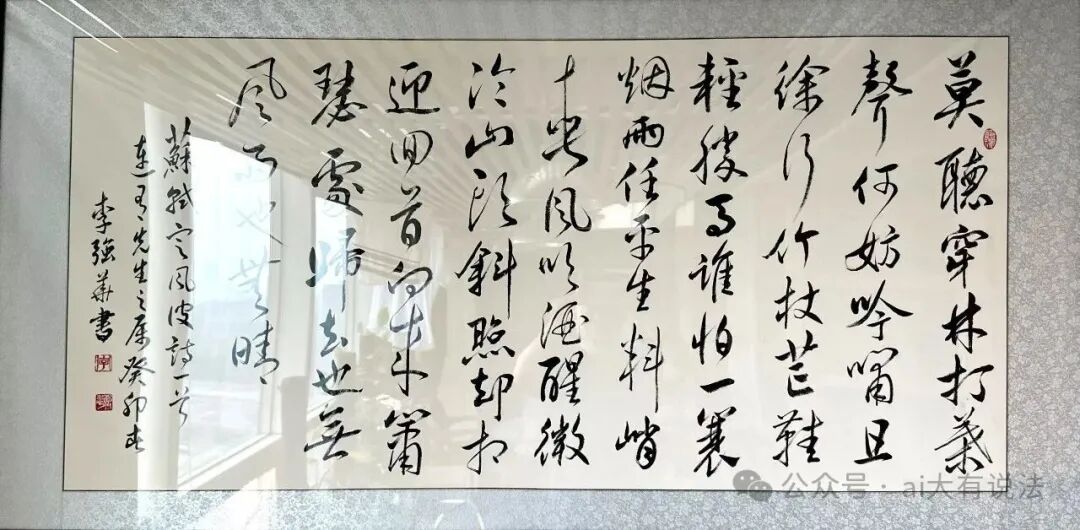 莫聽穿林打葉
聲何妨吟嘯且
徐行竹杖芒鞋
輕勝馬誰怕一蓑
烟雨任平生料峭
春風吹酒醒微
冷山頭斜照却相
迎回首向來簫
瑟處歸去也無
風雨也無晴
蘇軾定風波詩一首
先生之屬癸卯春
李強華書
公众号 · ai大有说法